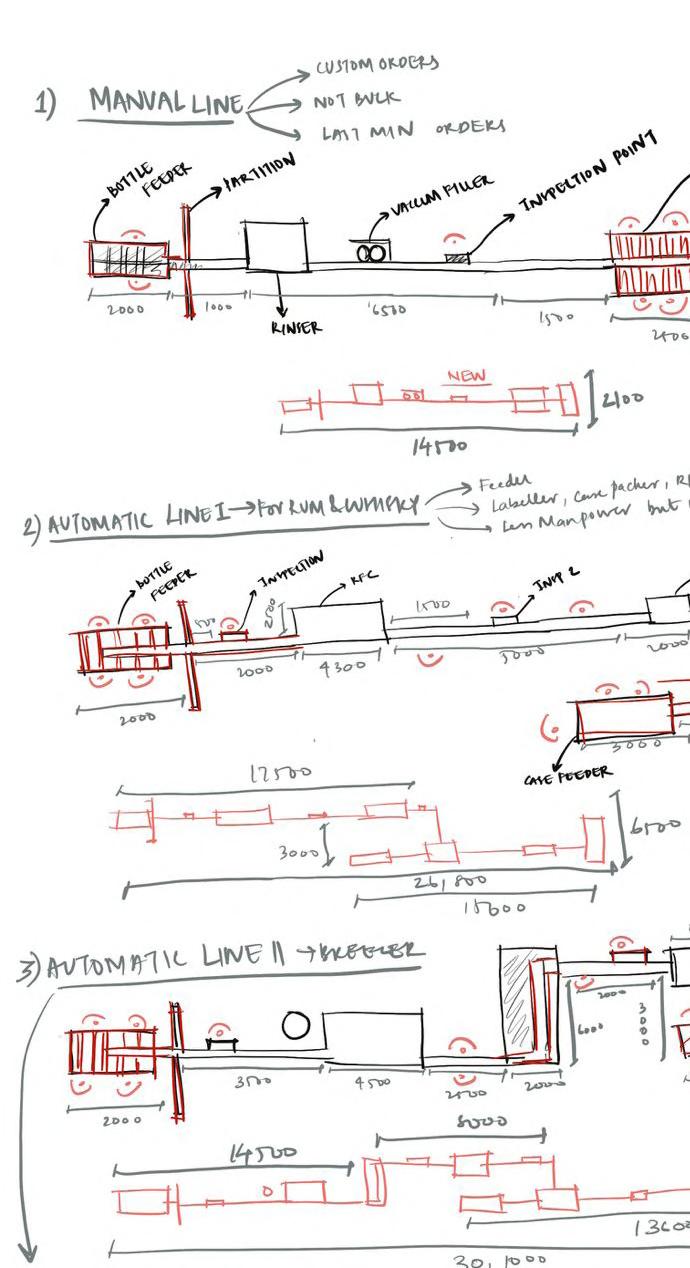 1) MANUAL LINE
CUSTOM ORDERS
NOT BULK
LAST MIN ORDERS
BOTTLE FEEDER
PARTITION
VACUUM FILLER
INSPECTION POINT
2000
1000
6500
1500
2400
RINSER
NEW
2100
14500
2) AUTOMATIC LINE I → FOR RUM & WHISKY
Feeder
Labeller, Case packer,
Less Manpower but
BOTTLE FEEDER
INSPECTION
RFC
INSP 2
500
2500
1500
2000
4300
5000
2000
2000
3000
CASE FEEDER
12500
3000
6500
26,800
15600
3) AUTOMATIC LINE II → BREEZER
2000
6000
3000
3500
4500
2500
2000
2000
8000
14500
13600
30,1000